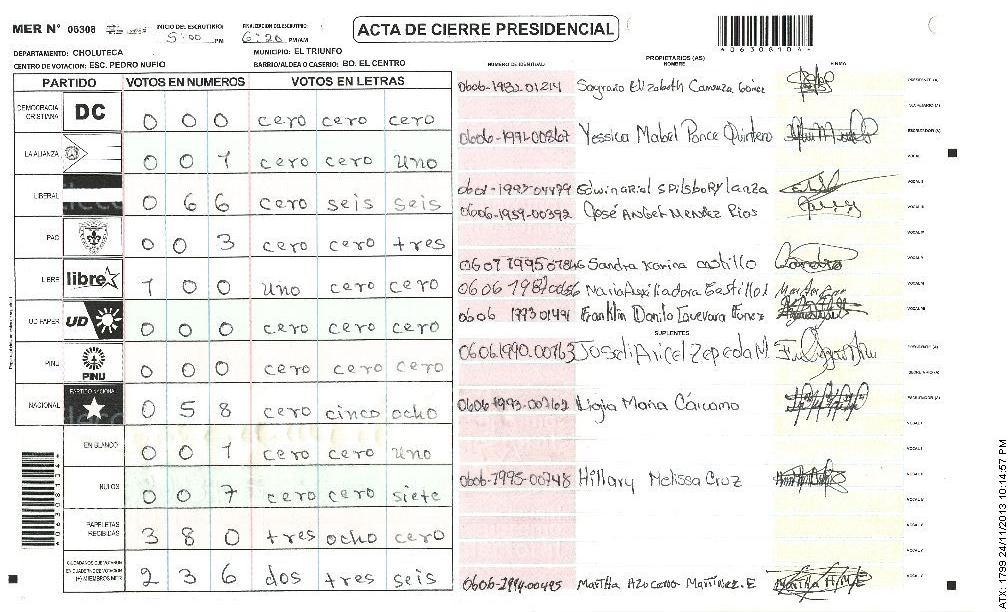 MER N° 06308 INICIO DEL ESCRUTINIO: 5:00 PM FINALIZACION DEL ESCRUTINIO: 6:20 PM/AM
ACTA DE CIERRE PRESIDENCIAL
DEPARTAMENTO: CHOLUTECA MUNICIPIO: EL TRIUNFO
CENTRO DE VOTACION: ESC. PEDRO NUFIO BARRIO/ALDEA O CASERIO: BO. EL CENTRO
PARTIDO VOTOS EN NUMEROS VOTOS EN LETRAS
DEMOCRACIA CRISTIANA DC 0 0 0 cero cero cero
LA ALIANZA 0 0 1 cero cero uno
LIBERAL 0 6 6 cero seis seis
PAC 0 0 3 cero cero tres
LIBRE libre 1 0 0 uno cero cero
UD FAPER UD 0 0 0 cero cero cero
PINU PINU 0 0 0 cero cero cero
NACIONAL PARTIDO NACIONAL 0 5 8 cero cinco ocho
EN BLANCO 0 0 1 cero cero uno
NULOS 0 0 7 cero cero siete
PAPELETAS RECIBIDAS 3 8 0 tres ocho cero
CIUDADANOS QUE VOTARON EN CUADERNO DE VOTACION (+) MIEMBROS MER 2 3 6 dos tres seis
NUMERO DE IDENTIDAD PROPIETARIOS (AS) NOMBRE FIRMA
Elizabeth
Yessica Mabel Ponce Quintero
Spilsbory Lanza
0606-1959-00392 José Angel Mendez Rios
Sandra Karina Castillo
Franklin Danilo Guevara
SUPLENTES
Zepeda M.
Ligia Maria Cárcamo
0606-1995-00748 Hillary Melissa Cruz
Martha Martinez.E
ATX: 1799 24/11/2013 10:14:57 PM